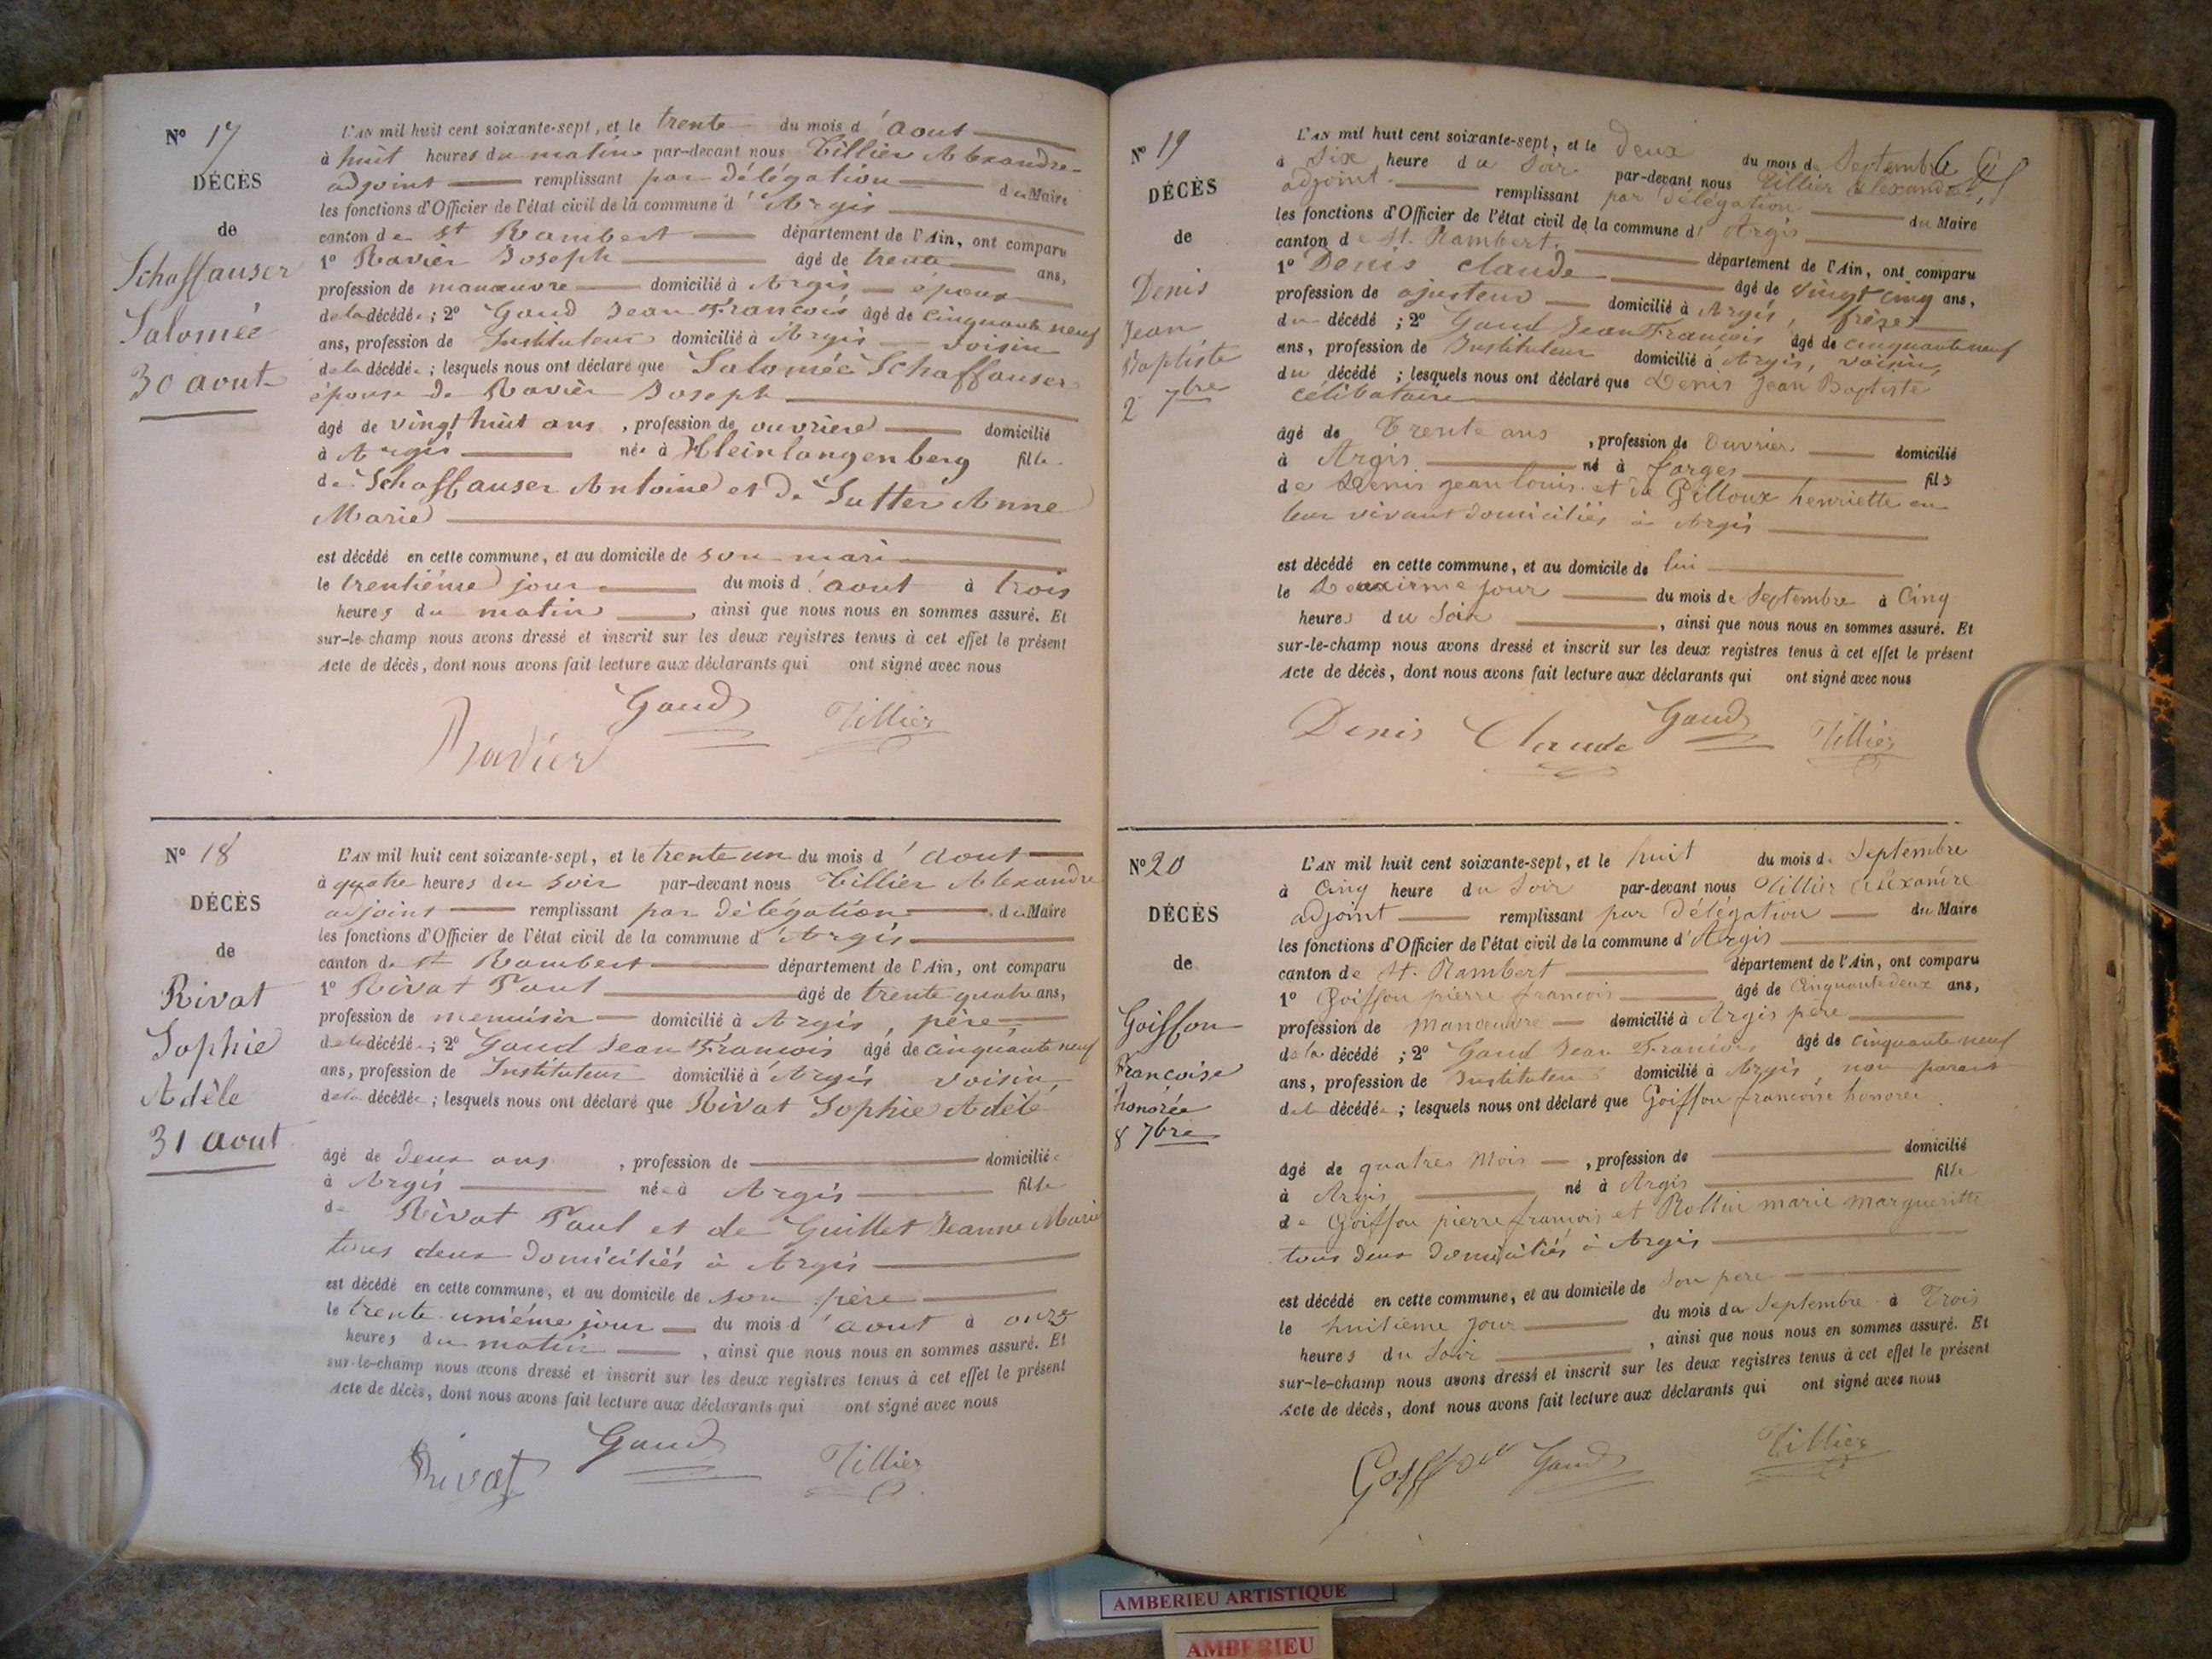 Nº 17
DÉCÈS
de
Schaffauser
Salomée
30 aout
L'AN mil huit cent soixante-sept, et le trente du mois d'Aout
à huit heures du matin par-devant nous Tillier Alexandre
adjoint remplissant par délégation du Maire
les fonctions d'Officier de l'état civil de la commune d'Argis
canton de St Rambert département de l'Ain, ont comparu
1º Ravier Joseph âgé de trente ans,
profession de manœuvre domicilié à Argis époux
de la décédée; 2º Gaud Jean François âgé de cinquante neuf
ans, profession de Instituteur domicilié à Argis voisin
de la décédée; lesquels nous ont déclaré que Salomée Schaffauser
épouse de Ravier Joseph
âgé de vingt huit ans, profession de ouvrière domicilié
à Argis née à Kleinlangenberg fille
de Schaffauser Antoine et de Sutter Anne
Marie
est décédé en cette commune, et au domicile de son mari
le trentième jour du mois d'aout à trois
heures du matin, ainsi que nous nous en sommes assuré. Et
sur-le-champ nous avons dressé et inscrit sur les deux registres tenus à cet effet le présent
Acte de décès, dont nous avons fait lecture aux déclarants qui ont signé avec nous
Gaud Tillier
Ravier
Nº 18
DÉCÈS
de
Rivat
Sophie
Adèle
31 aout
L'AN mil huit cent soixante-sept, et le trente un du mois d'Aout
à quatre heures du soir par-devant nous Tillier Alexandre
adjoint remplissant par délégation du Maire
les fonctions d'Officier de l'état civil de la commune d'Argis
canton de St Rambert département de l'Ain, ont comparu
1º Rivat Paul âgé de trente quatre ans,
profession de menuisier domicilié à Argis, père
de la décédée; 2º Gaud Jean François âgé de cinquante neuf
ans, profession de Instituteur domicilié à Argis voisin,
de la décédée; lesquels nous ont déclaré que Rivat Sophie Adèle
âgé de deux ans, profession de domiciliée
à Argis née à Argis fille
de Rivat Paul et de Guillet Jeanne Marie
tous deux domiciliés à Argis
est décédé en cette commune, et au domicile de son père
le trente unième jour du mois d'aout à onze
heures du matin, ainsi que nous nous en sommes assuré. Et
sur-le-champ nous avons dressé et inscrit sur les deux registres tenus à cet effet le présent
Acte de décès, dont nous avons fait lecture aux déclarants qui ont signé avec nous
Rivat Gaud Tillier
Nº 19
DÉCÈS
de
Denis
Jean
Baptiste
2 7bre
L'AN mil huit cent soixante-sept, et le deux du mois de Septembre
à Six heure du Soir par-devant nous Tillier Alexandre,
adjoint remplissant par délégation du Maire
les fonctions d'Officier de l'état civil de la commune d'Argis
canton de St. Rambert département de l'Ain, ont comparu
1º Denis Claude âgé de vingt cinq ans,
profession de ajusteur domicilié à Argis, frère
du décédé; 2º Gaud Jean François âgé de cinquante neuf
ans, profession de Instituteur domicilié à Argis, voisin,
du décédé; lesquels nous ont déclaré que Denis Jean Baptiste
célibataire
âgé de Trente ans, profession de ouvrier domicilié
à Argis né à forges fils
de Denis jean louis et de Gilloux henriette en
leur vivant domiciliés à Argis
est décédé en cette commune, et au domicile de lui
le Deuxième jour du mois de Septembre à Cinq
heures du Soir, ainsi que nous nous en sommes assuré. Et
sur-le-champ nous avons dressé et inscrit sur les deux registres tenus à cet effet le présent
Acte de décès, dont nous avons fait lecture aux déclarants qui ont signé avec nous
Denis Claude Gaud Tillier
Nº 20
DÉCÈS
de
Goiffon
Francoise
honorée
8 7bre
L'AN mil huit cent soixante-sept, et le huit du mois de Septembre
à Cinq heure du Soir par-devant nous Tillier Alexandre
adjoint remplissant par délégation du Maire
les fonctions d'Officier de l'état civil de la commune d'Argis
canton de St. Rambert département de l'Ain, ont comparu
1º Goiffon pierre francois âgé de Cinquante deux ans,
profession de manoeuvre domicilié à Argis père
de la décédé; 2º Gaud Jean François âgé de cinquante neuf
ans, profession de Instituteur domicilié à Argis, non parent
de la décédée; lesquels nous ont déclaré que Goiffon francoise honorée
âgé de quatres mois, profession de domicilié
à Argis né à Argis fille
de Goiffon pierre francois et Rollin marie margueritte
tous deux domiciliés à Argis
est décédé en cette commune, et au domicile de son pere
le huitième jour du mois de Septembre à Trois
heures du Soir, ainsi que nous nous en sommes assuré. Et
sur-le-champ nous avons dressé et inscrit sur les deux registres tenus à cet effet le présent
Acte de décès, dont nous avons fait lecture aux déclarants qui ont signé avec nous
Goiffon Gaud Tillier
AMBERIEU ARTISTIQUE
AMBERIEU